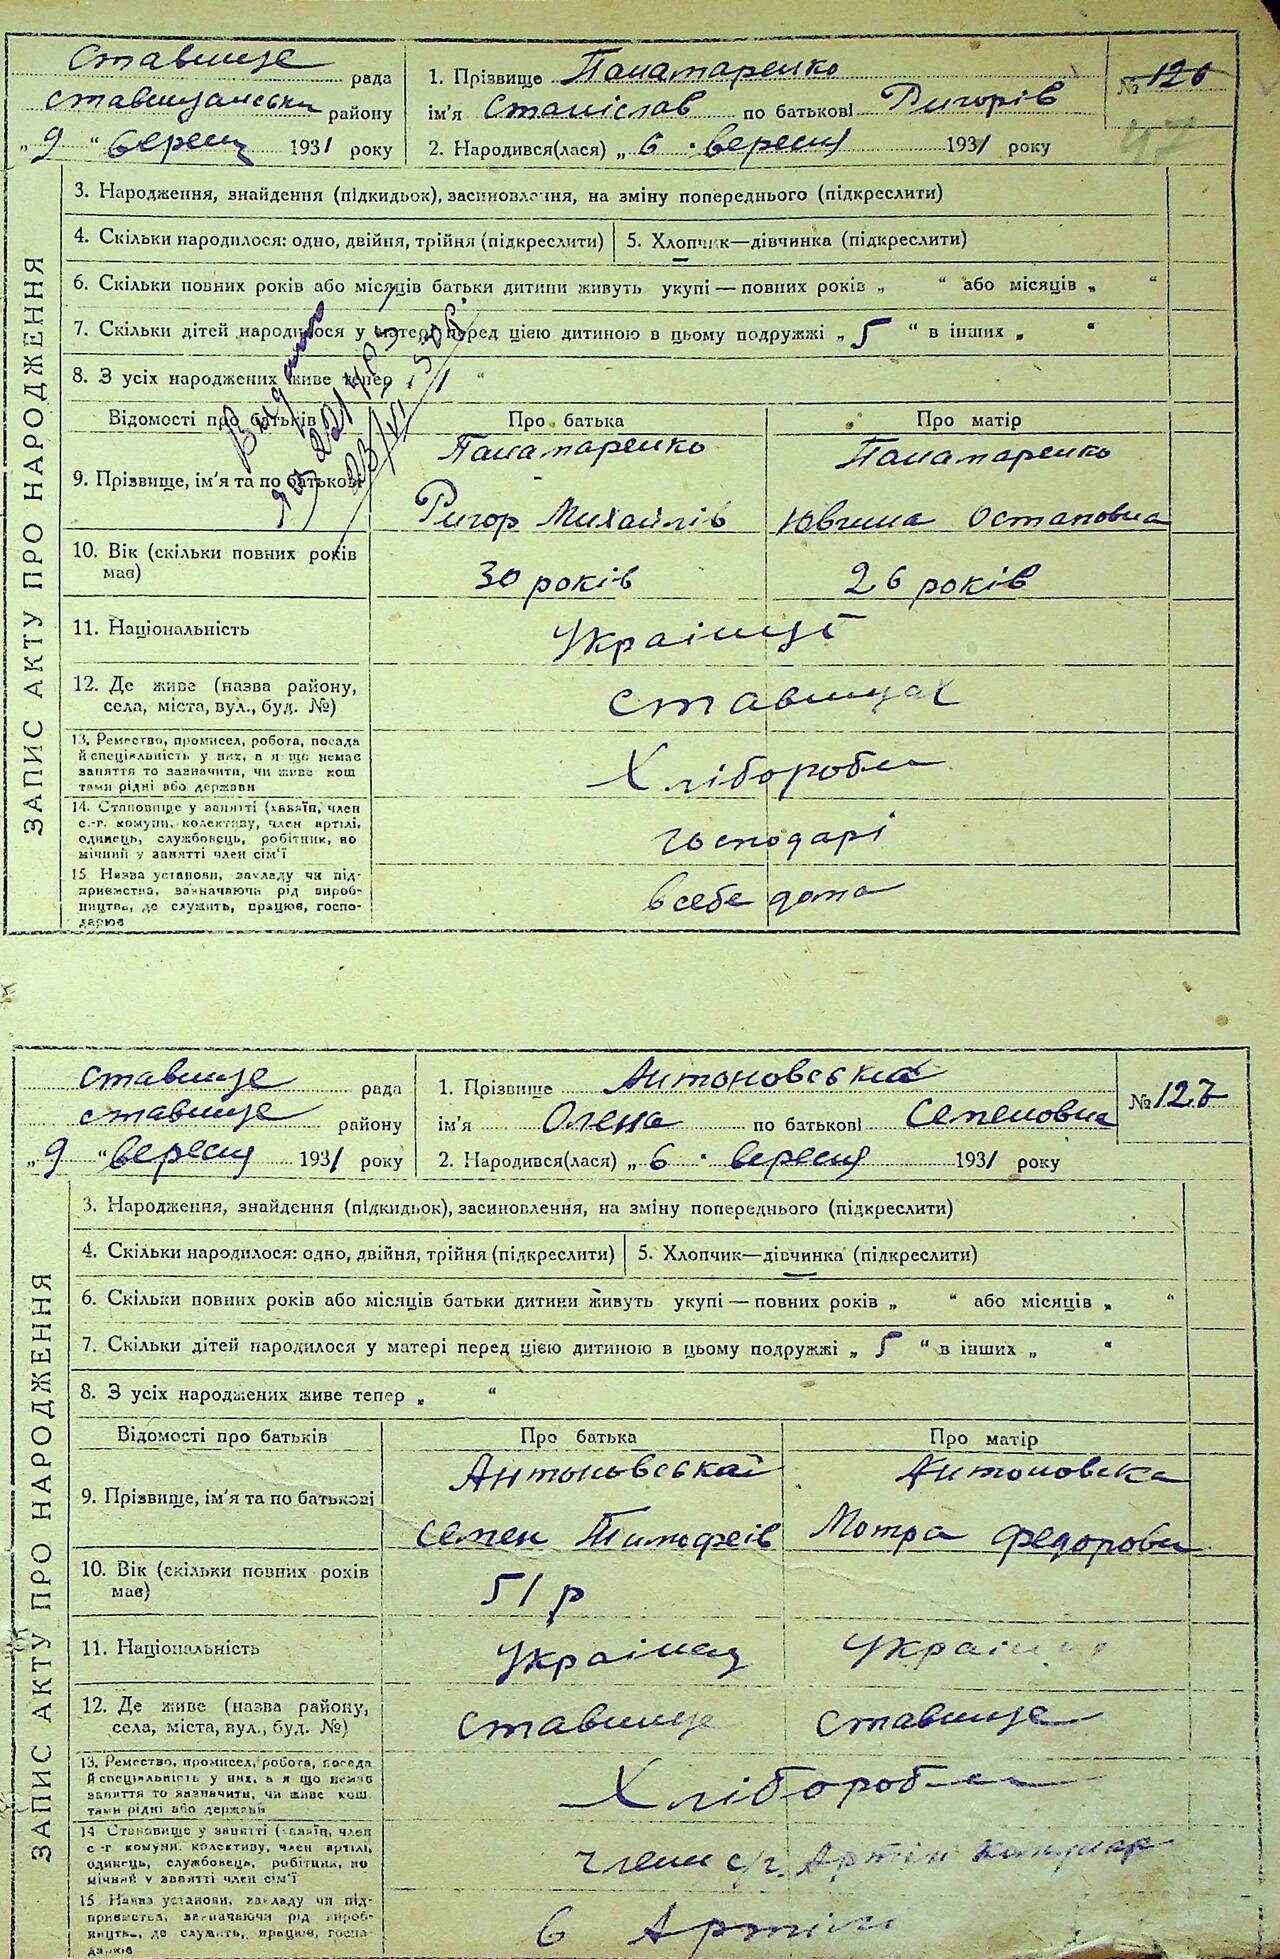 Ставище рада
ставищанськи району
„9 “ вересня 1931 року
1. Прізвище Панатаренко
ім'я Станіслав по батькові Ригорів
2. Народився(лася) „ 6 . вересня 1931 року
№ 126
ЗАПИС АКТУ ПРО НАРОДЖЕННЯ
3. Народження, знайдення (підкидьок), засиновлення, на зміну попереднього (підкреслити)
4. Скільки народилося: одно, двійня, трійня (підкреслити) 5. Хлопчик—дівчинка (підкреслити)
6. Скільки повних років або місяців батьки дитини живуть укупі — повних років „ “ або місяців „ “
7. Скільки дітей народилося у матері перед цією дитиною в цьому подружжі „ 5 “ в інших „ “
8. З усіх народжених живе тепер „ 1 “
Відомості про батьків Про батька Про матір
Панатаренко Панатаренко
9. Прізвище, ім'я та по батькові
Ригор Михайлів Ювгина Остаповна
10. Вік (скільки повних років має) 30 років 26 років
11. Національність Українці
12. Де живе (назва району, села, міста, вул., буд. №) Ставищах
13. Ремество, промисел, робота, посада
й спеціяльність у них, а якщо немає
заняття то зазначити, чи живе кош
тами рідні або держави
Хлібороби
14. Становище у занятті (хазяїн, член
с.-г. комуни, колективу, член артілі,
одинець, службовець, робітник, по
мічний у занятті член сім'ї
господарі
15 Назва установи, закладу чи під-
приємства, зазначаючи рід вироб-
ництва, де служить, працює, госпо-
дарює
в себе дома
ставище рада
ставище району
„9 “ вересня 1931 року
1. Прізвище Антоновська
ім'я Олена по батькові Семеновна
2. Народився(лася) „ 6 . вересня 1931 року
№ 127
ЗАПИС АКТУ ПРО НАРОДЖЕННЯ
3. Народження, знайдення (підкидьок), засиновлення, на зміну попереднього (підкреслити)
4. Скільки народилося: одно, двійня, трійня (підкреслити) 5. Хлопчик—дівчинка (підкреслити)
6. Скільки повних років або місяців батьки дитини живуть укупі — повних років „ “ або місяців „ “
7. Скільки дітей народилося у матері перед цією дитиною в цьому подружжі „ 5 “ в інших „ “
8. З усіх народжених живе тепер „ “
Відомості про батьків Про батька Про матір
Антоновський Антоновска
9. Прізвище, ім'я та по батькові
Семен Тимофеів Мотра Федоровн
10. Вік (скільки повних років має) 51 р
11. Національність Українец
12. Де живе (назва району, села, міста, вул., буд. №) ставище ставище
13. Ремество, промисел, робота, посада
й спеціяльність у них, а якщо немає
заняття то зазначити, чи живе кош
тами рідні або держави
Хлібороби
14 Становище у занятті (хазяїн, член
с-г комуни, колективу, член артілі,
одинець, службовець, робітник, по
мічний у занятті член сім'ї
члени с/г. Артіл
15 Назва установи, закладу чи під-
приємства, зазначаючи рід вироб-
ництва, де служить, працює, госпо-
дарює
в Артілі